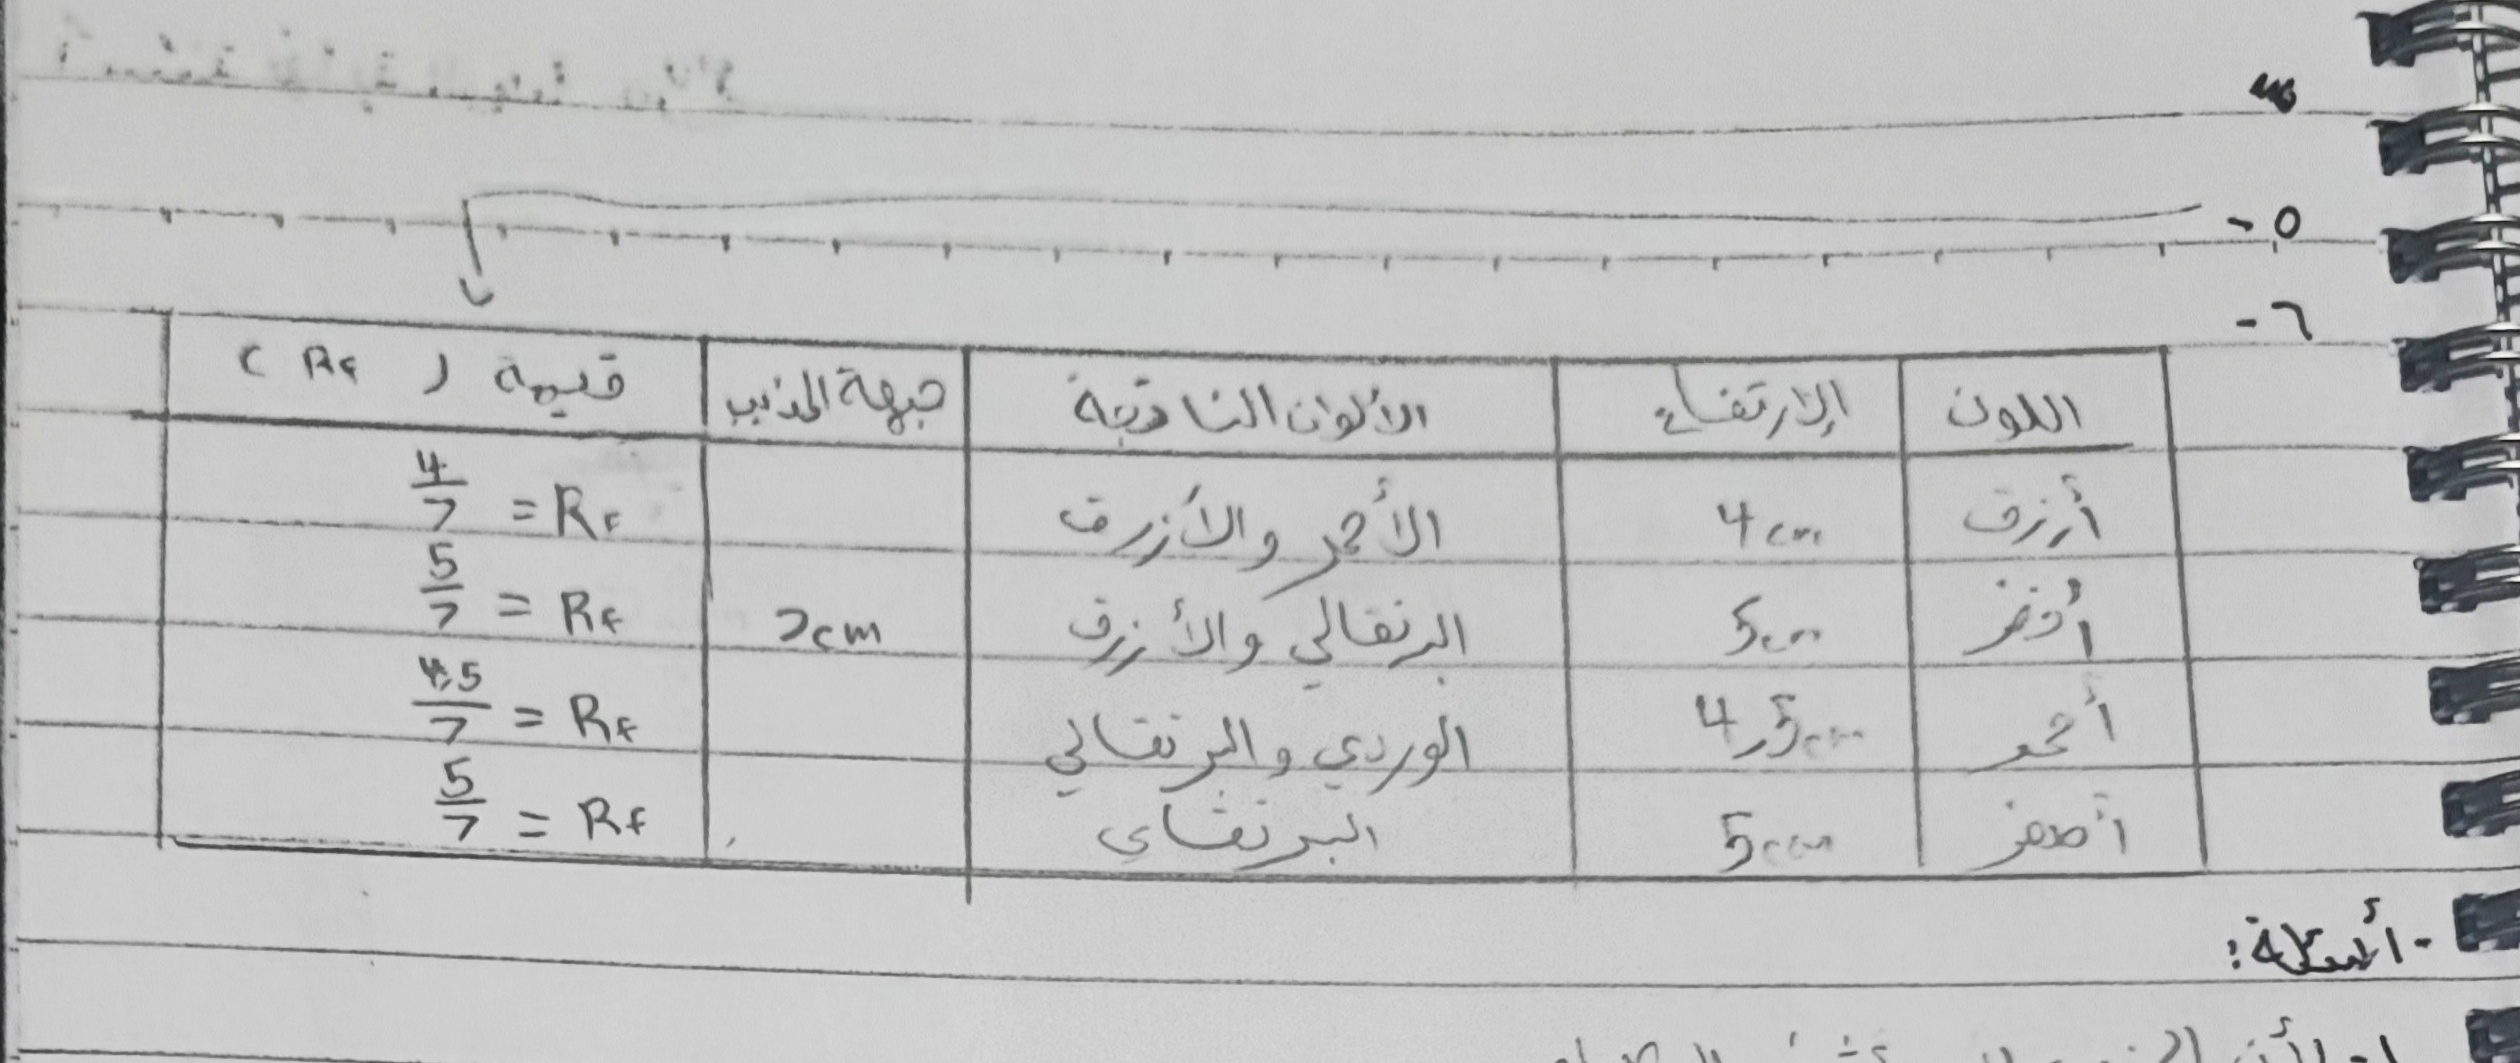 ٥-
٦-
اللون | الارتفاع | الألوان الناتجة | جبهة المذيب | قيمة ( Rf )
أزرق | 4cm | الأحمر والأزرق | | Rf = 4/7
أخضر | 5cm | البرتقالي والأزرق | 7cm | Rf = 5/7
أحمر | 4,5cm | الوردي والبرتقالي | | Rf = 4,5/7
أصفر | 5cm | البرتقالي | | Rf = 5/7
- أسئلة: